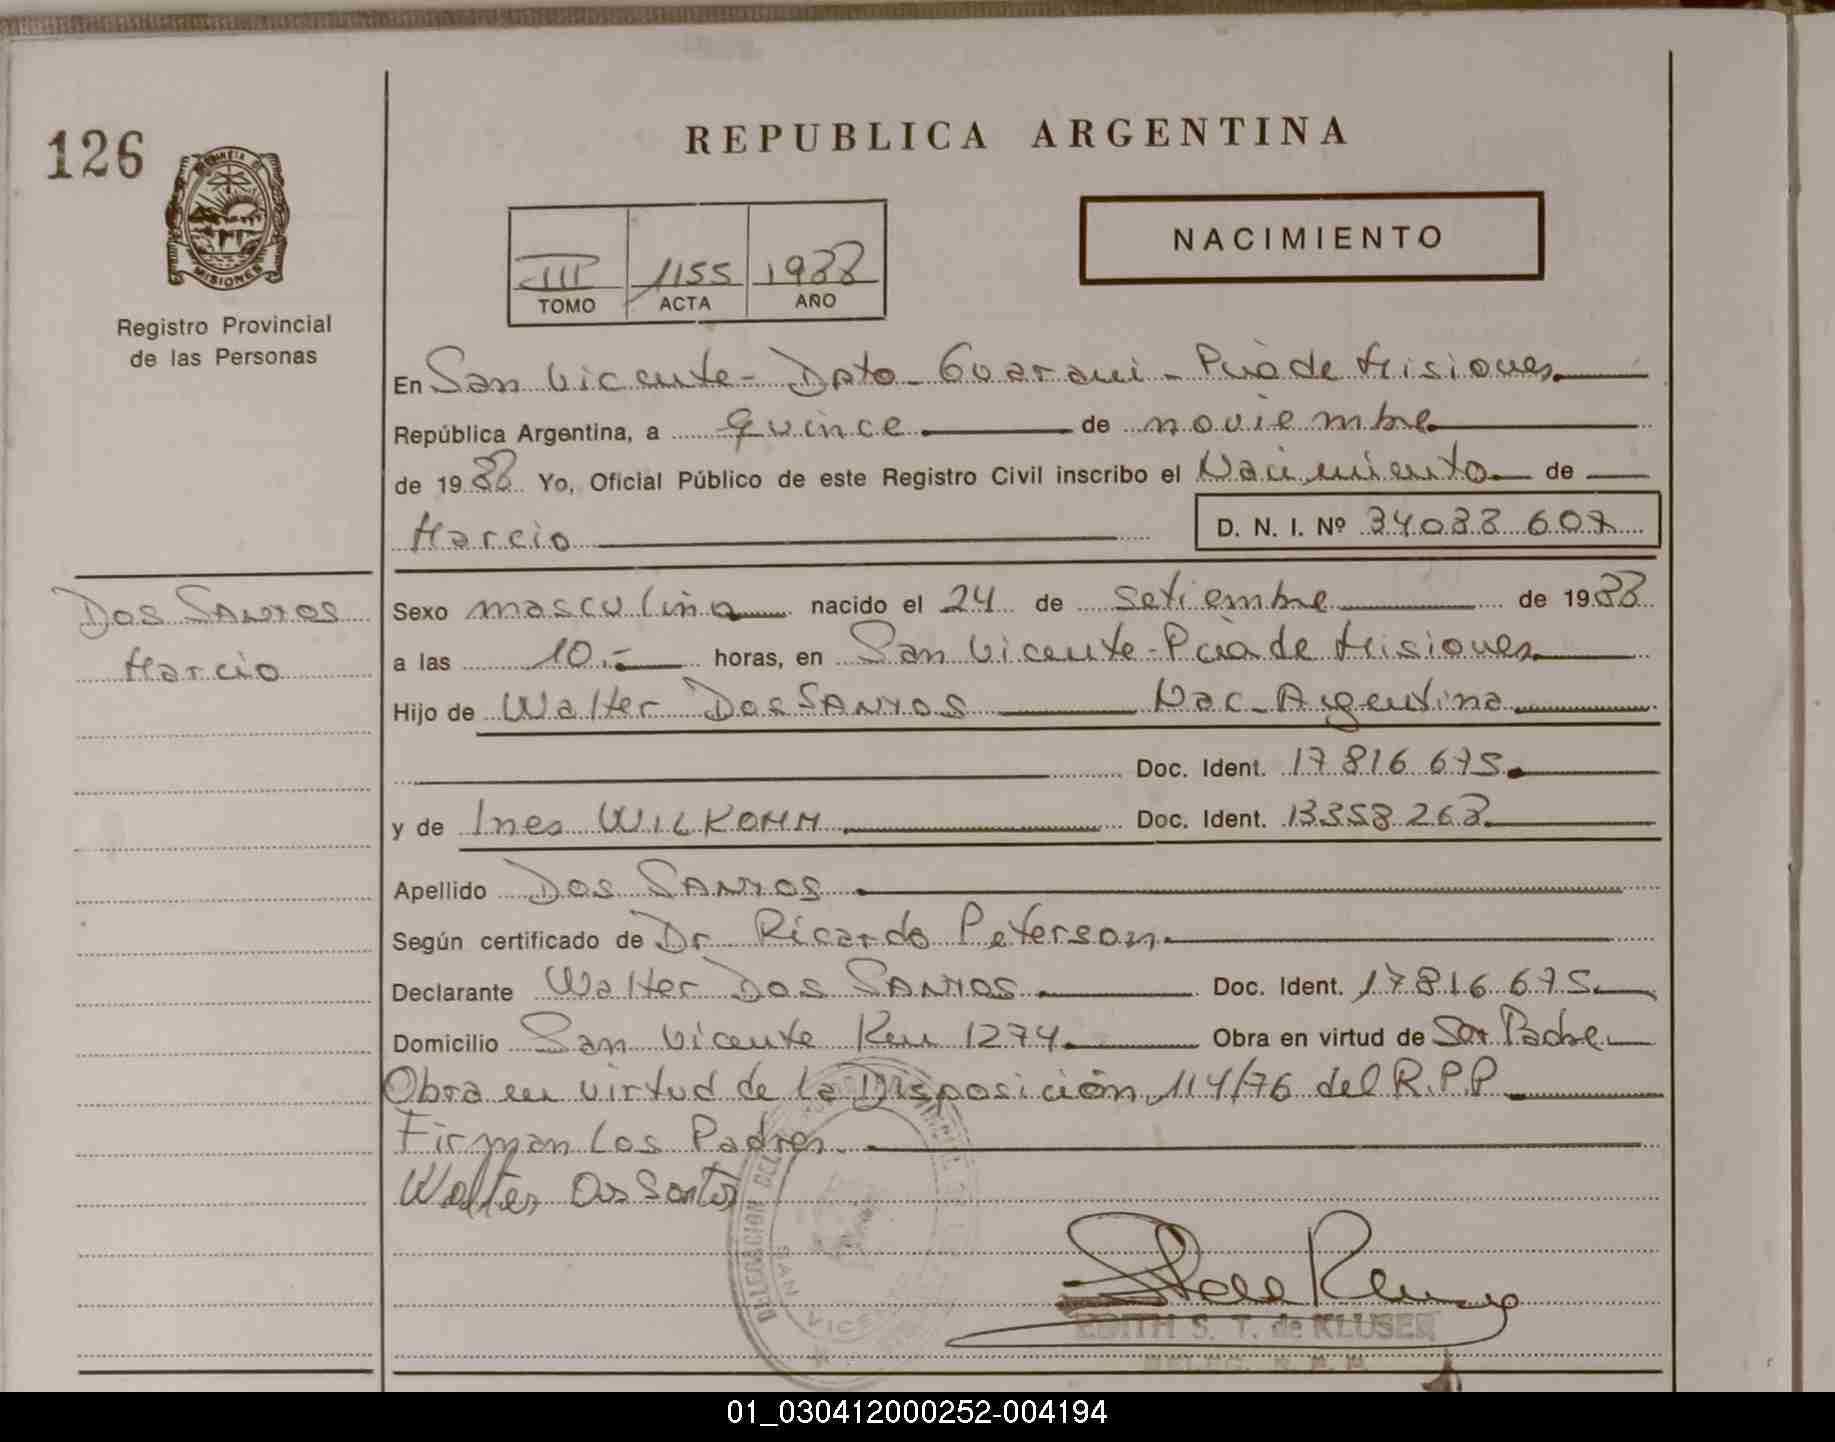 126
REPUBLICA ARGENTINA
NACIMIENTO
III 1155 1988
TOMO ACTA AÑO
MISIONES
Registro Provincial
de las Personas
En San Vicente - Dpto - Guarani - Pcia de Misiones
República Argentina, a quince de noviembre
de 1988 Yo, Oficial Público de este Registro Civil inscribo el Nacimiento de
Marcio D. N. I. Nº 34088 607
Dos Santos
Marcio
Sexo masculino nacido el 24 de setiembre de 1988
a las 10.- horas, en San Vicente - Pcia de Misiones
Hijo de Walter Dos Santos Nac - Argentina
Doc. Ident. 17 816 675
y de Ines WILKOMM Doc. Ident. 13358 268
Apellido Dos Santos
Según certificado de Dr Ricardo Peterson
Declarante Walter Dos Santos Doc. Ident. 17816 675
Domicilio San Vicente Km 1274 Obra en virtud de Ser Padre
Obra en virtud de la Disposición 114/76 del R.P.P
Firman los Padres.
Walter Dos Santos
DELEGACION DEL
SAN VICENTE
EDITH S. T. de KLUSER
01_030412000252-004194